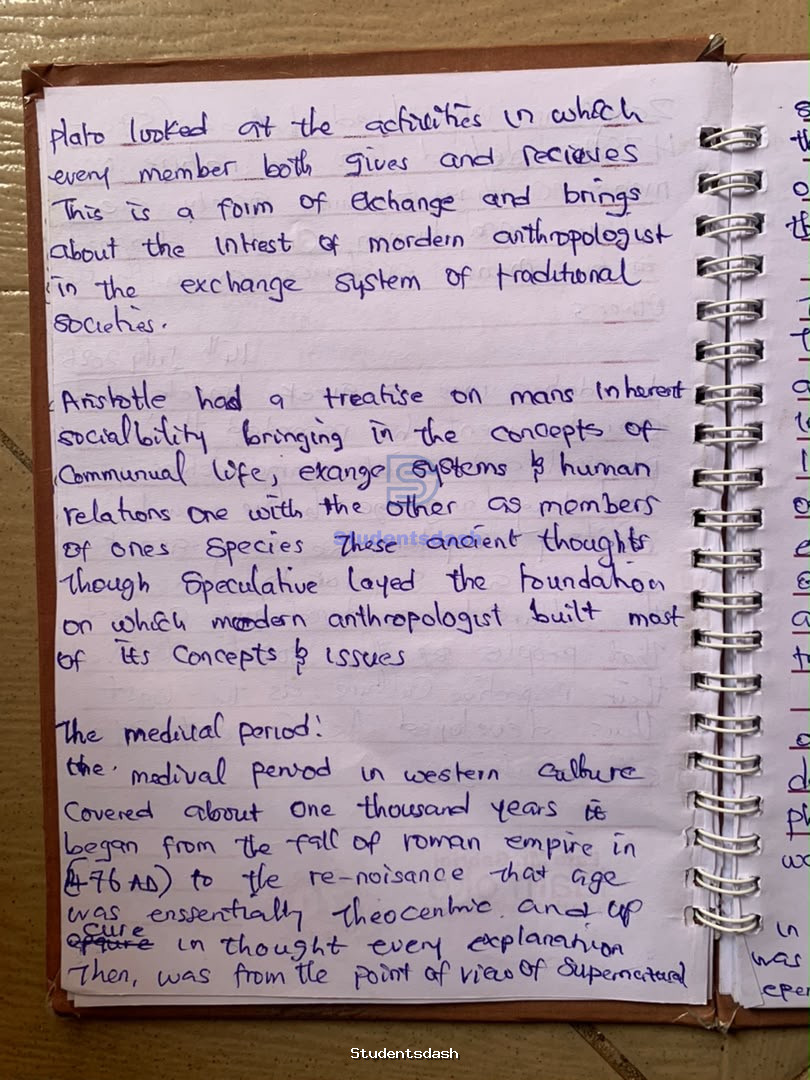 plato looked at the activities in which
every member both gives and recieves
This is a form of Exchange and brings
about the Intrest of mordern anthropologist
in the exchange system of traditional
societies.
Aristotle had a treatise on mans Inherent
socialbility bringing in the concepts of
Communual life, exange systems & human
relations one with the other as members
of ones species These ancient thoughts
though speculative layed the foundation
on which modern anthropologist built most
of its concepts & issues
The medival period:
the medival period in western culture
Covered about one thousand years it
began from the fall of roman empire in
(476 AD) to the re-noisance that age
was enssentially theocentric and up
cure
in thought every explanation
Then, was from the point of view of Supernatural
Studentsdash
Studentsdash